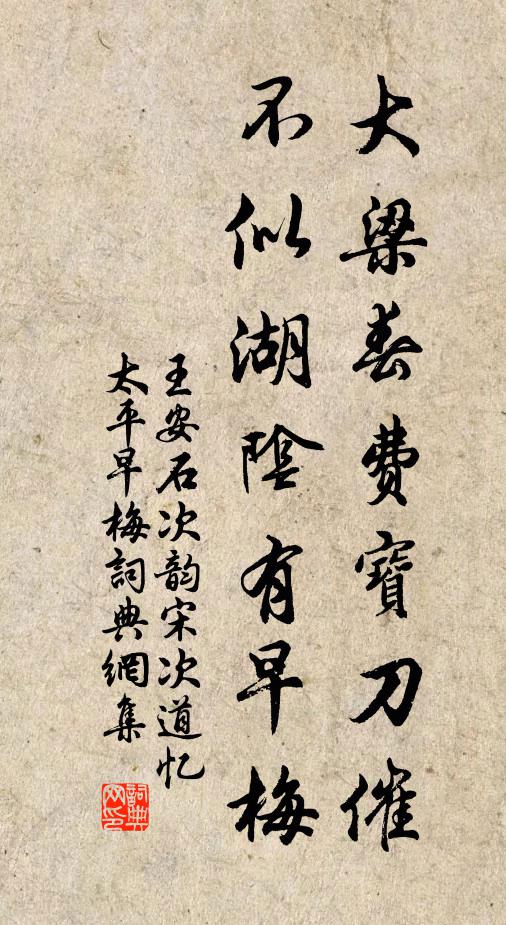 大梁春費寶刀催
不似湖陰有早梅
王安石次韵宋次道忆
太平早梅詞典網集
詞典网印